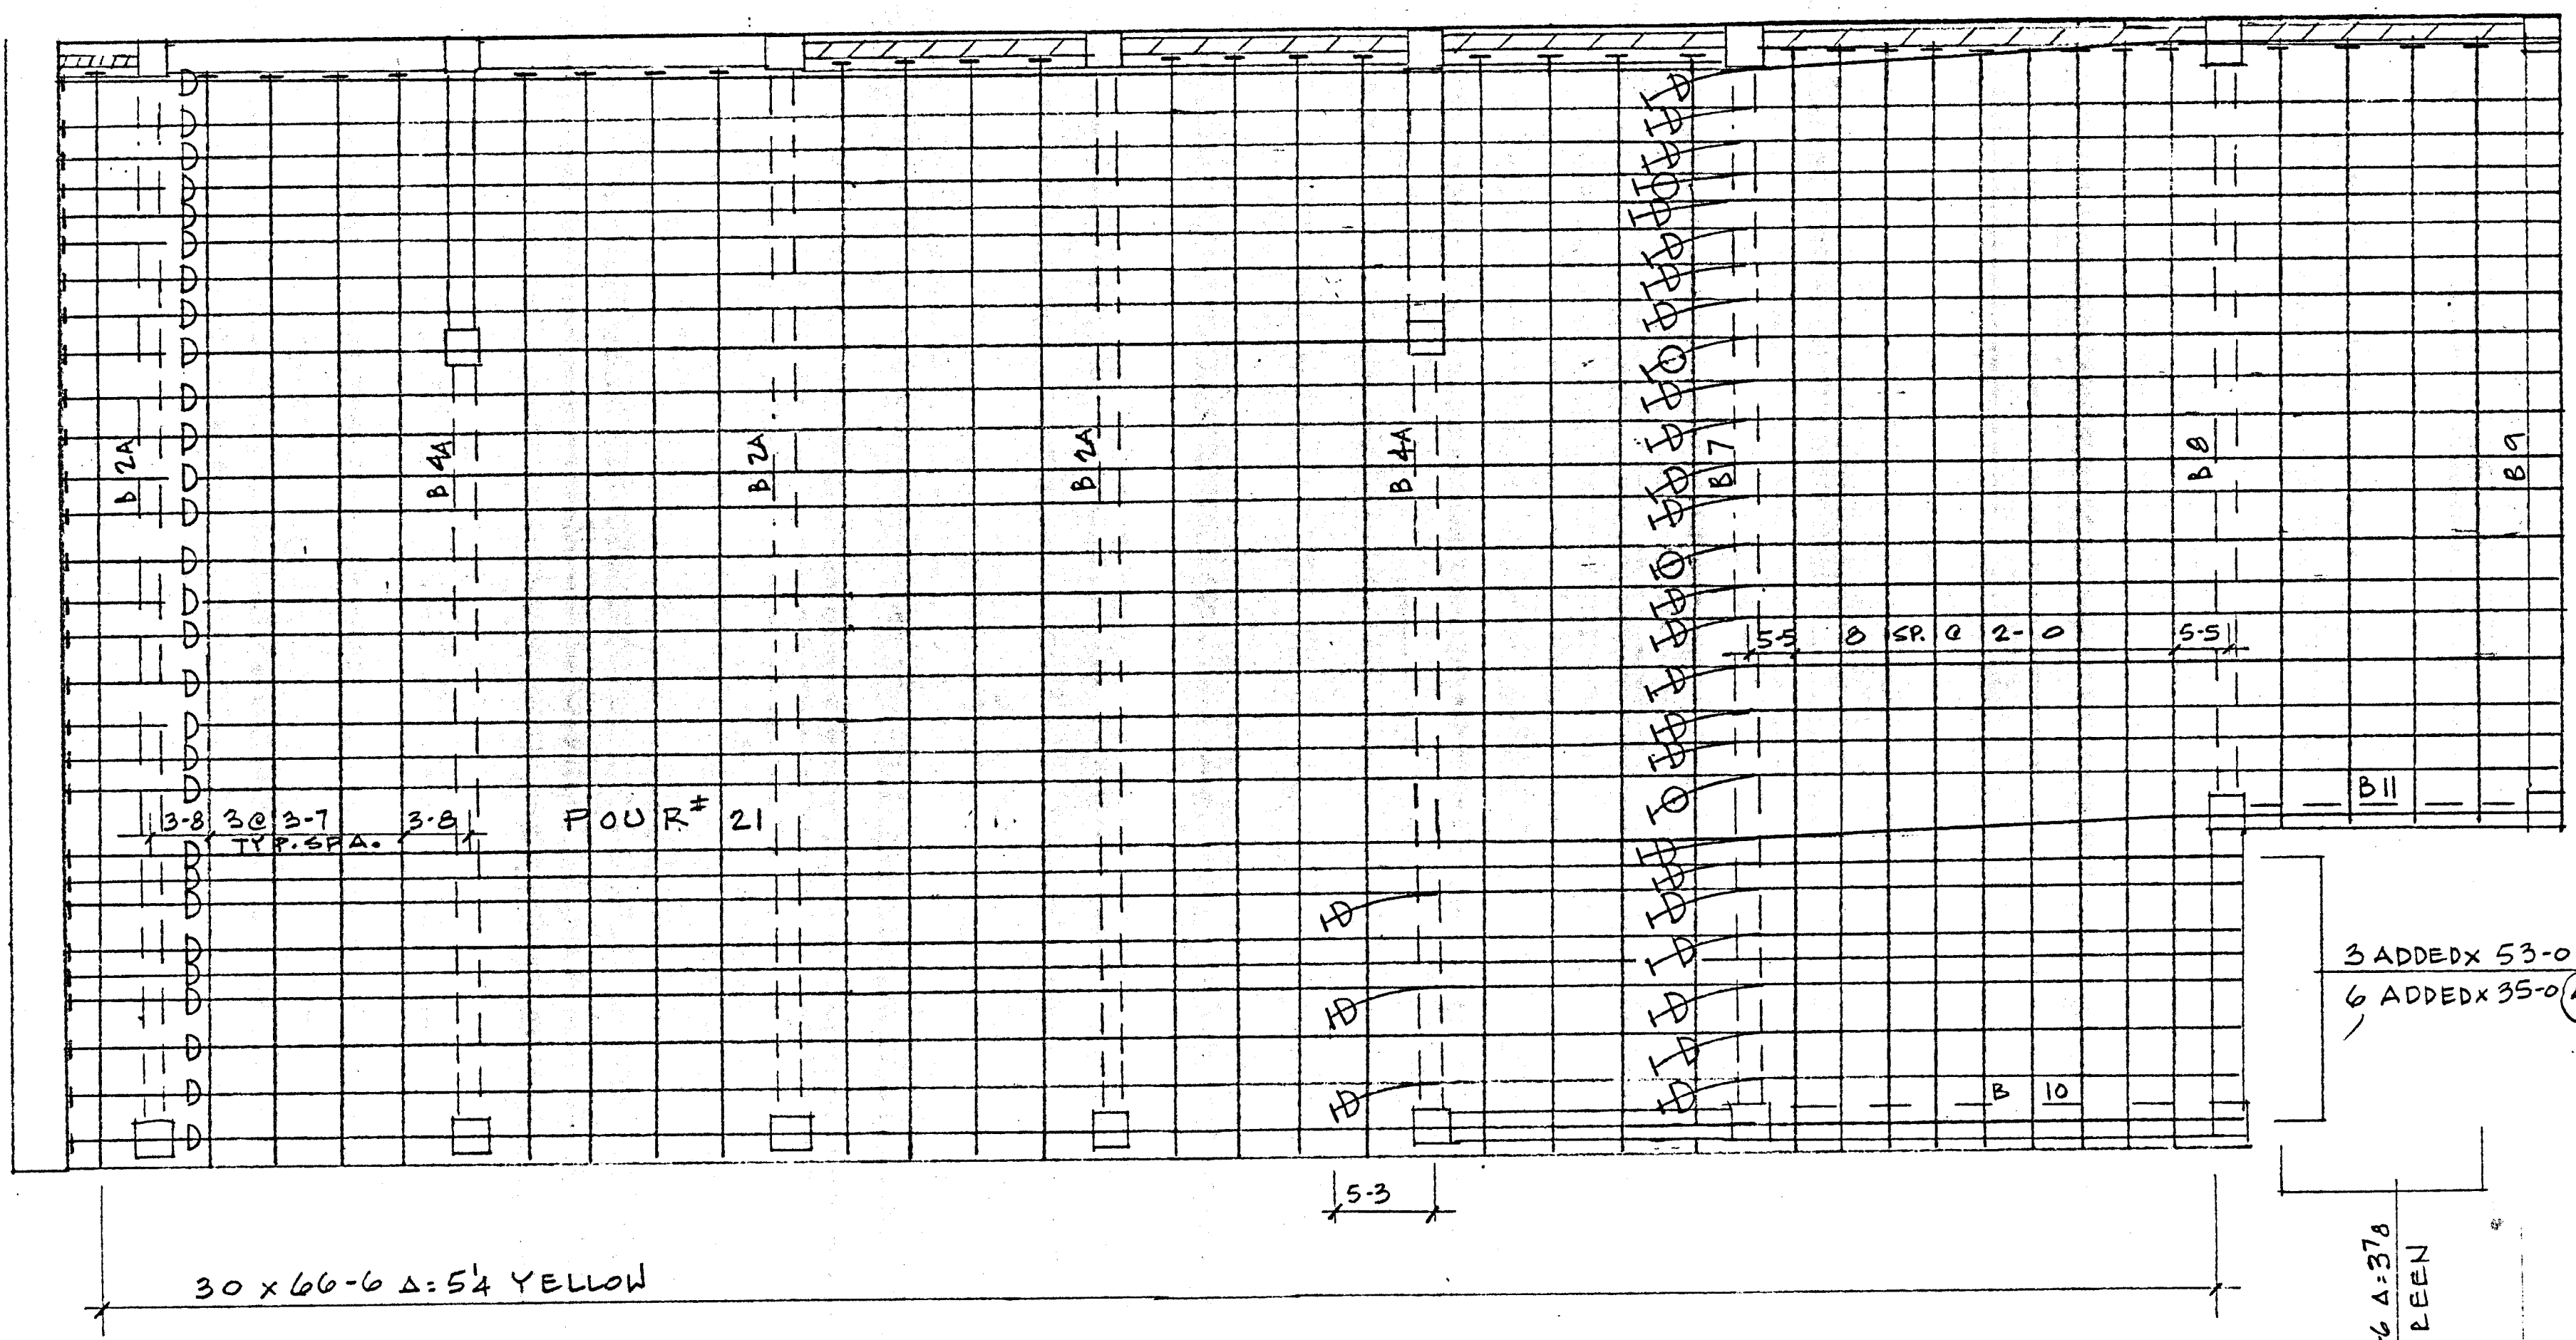 B 2A
B 4A
B 2A
B 2A
B 4A
B 7
B 8
B 9
5-5 8 SP. @ 2-0 5-5
B 11
3-8 3@ 3-7 3-8
TYP. SPA.
POUR# 21
3 ADDED x 53-0
6 ADDED x 35-0
B 10
5-3
30 x 66-6 Δ=5¼ YELLOW
-6 Δ=3⅞
REEN